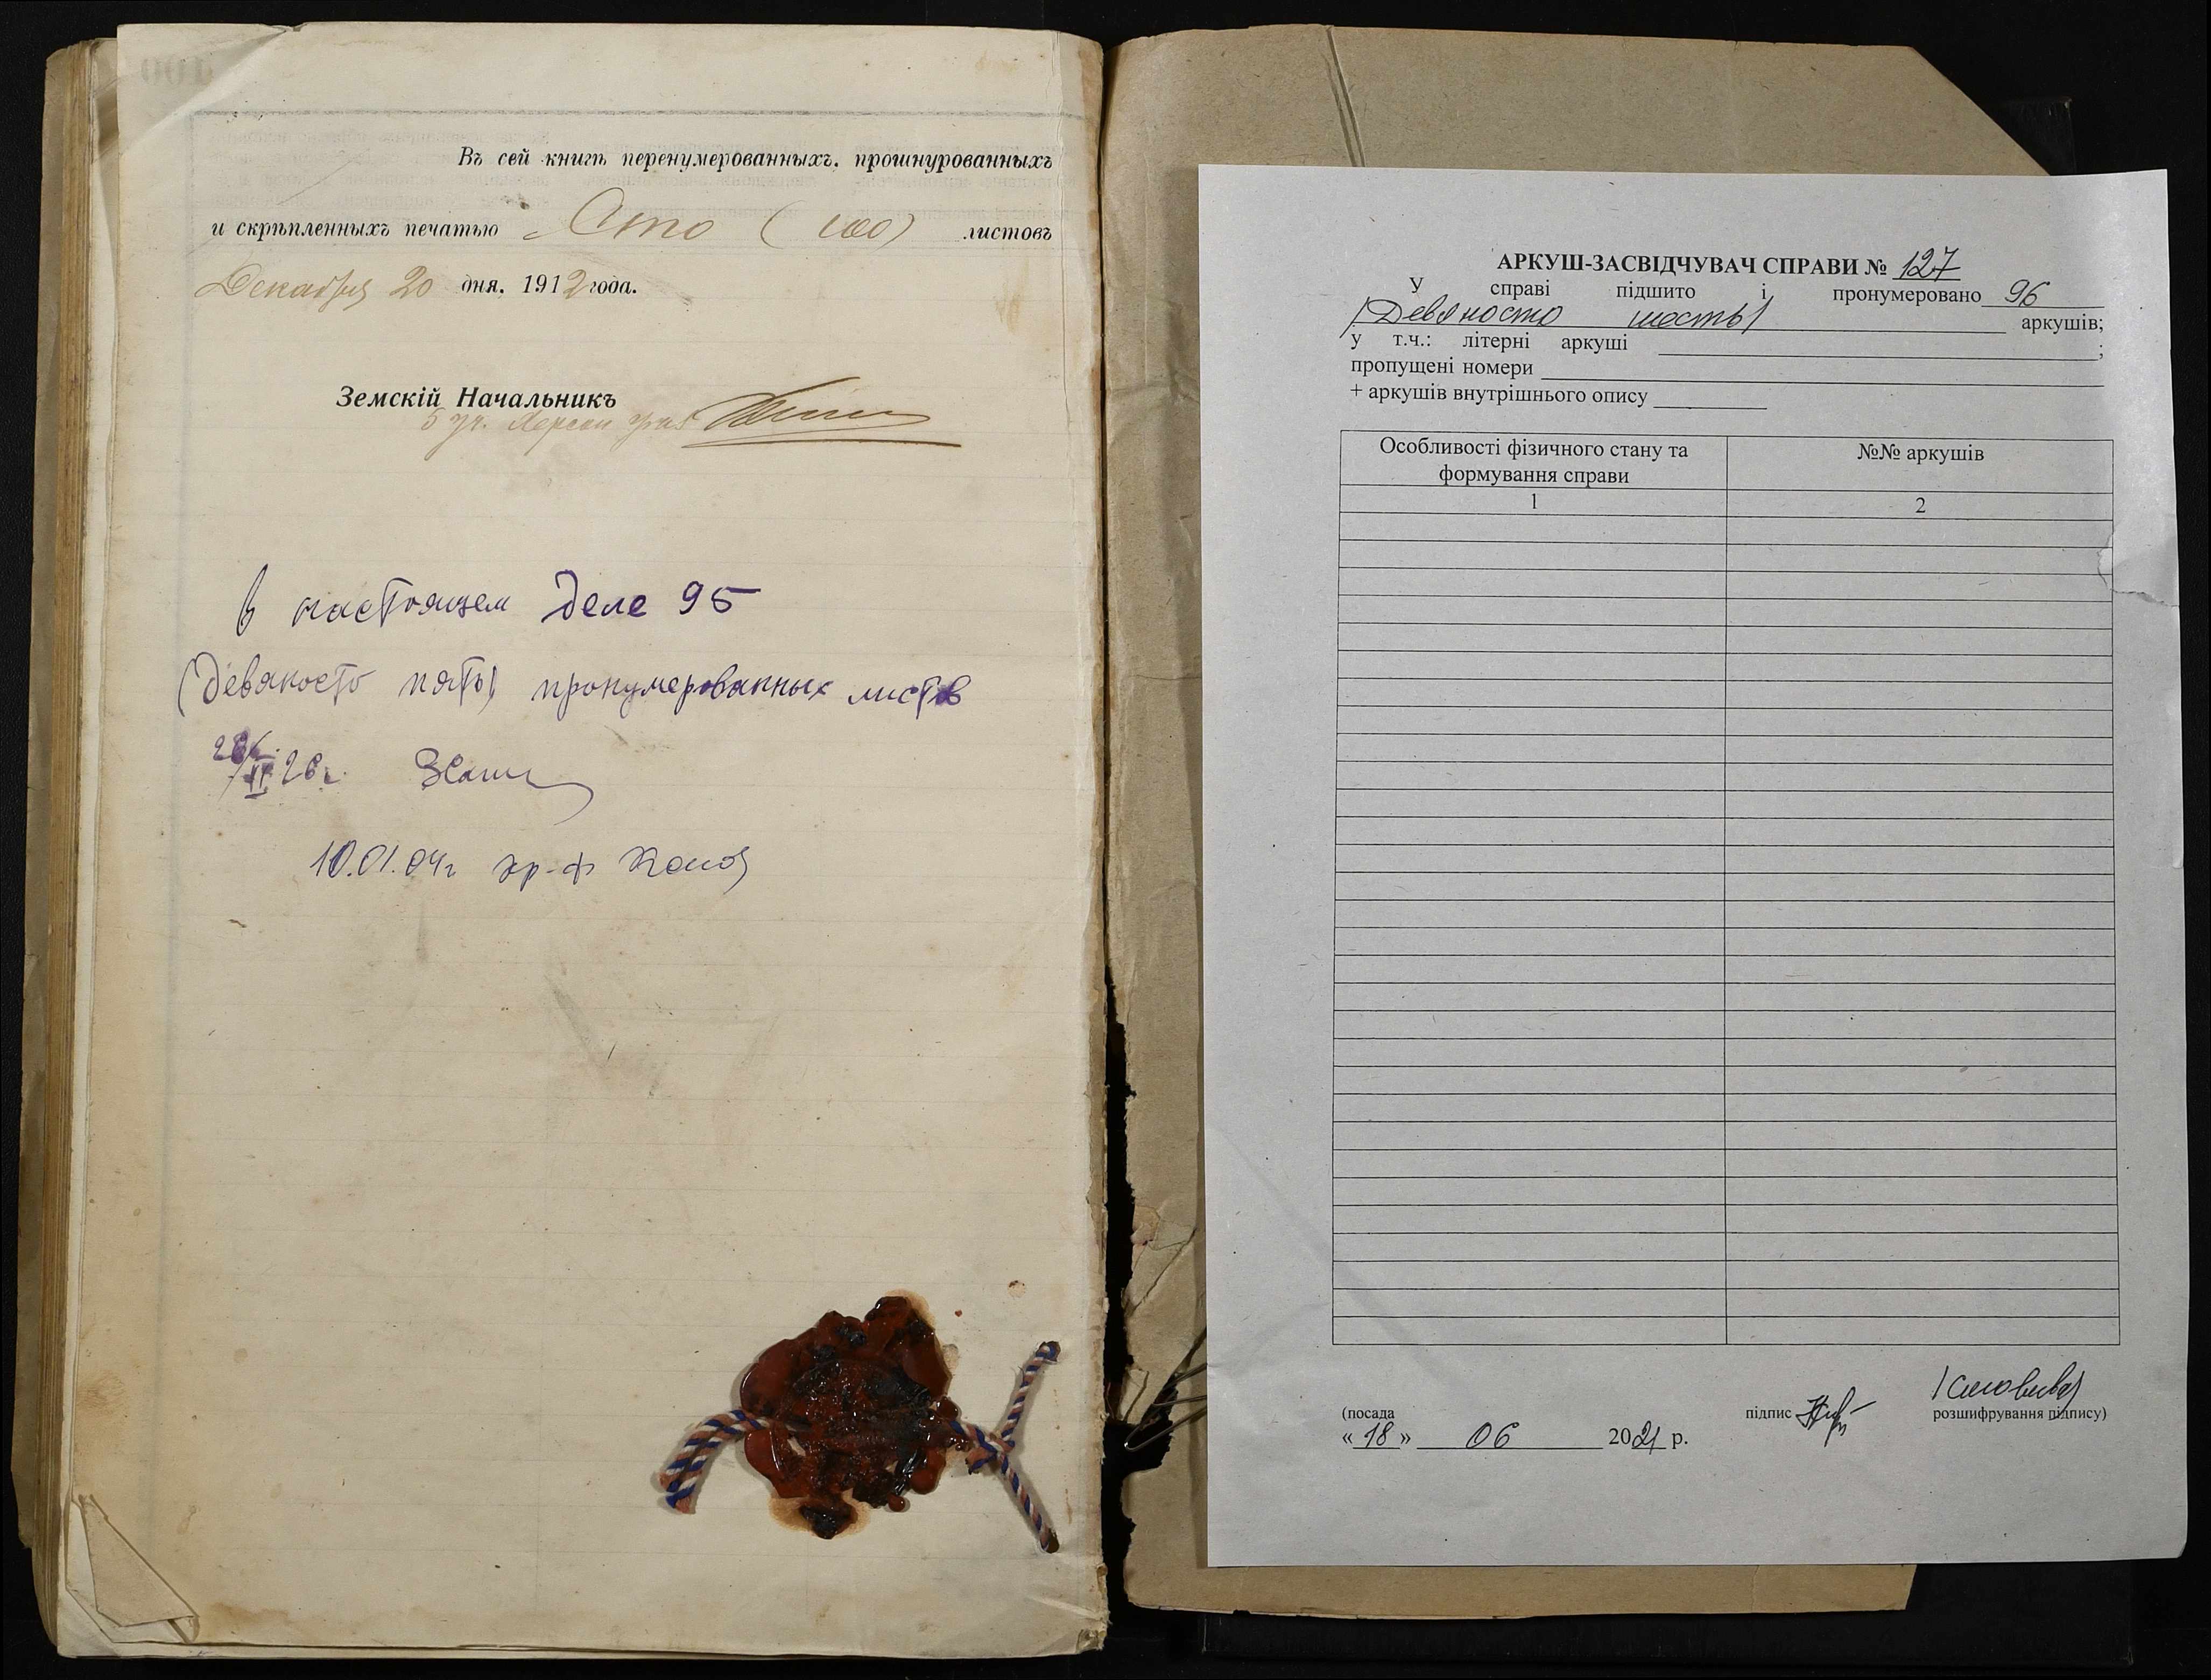 Въ сей книгѣ перенумерованныхъ, прошнурованныхъ
и скрѣпленныхъ печатью Сто (100) листовъ
Декабря 20 дня, 1912 года.
Земскій Начальникъ
5 уч. Херсон
В настоящем деле 95
(девяносто пять) пронумерованных листов
26г.
10.01.04г хр-ф
АРКУШ-ЗАСВІДЧУВАЧ СПРАВИ № 127
У справі підшито і пронумеровано 96
(Девяносто шесть) аркушів;
у т.ч.: літерні аркуші ;
пропущені номери
+ аркушів внутрішнього опису
Особливості фізичного стану та
формування справи
№№ аркушів
1 2
(посада підпис розшифрування підпису)
« 18 » 06 2021 р.